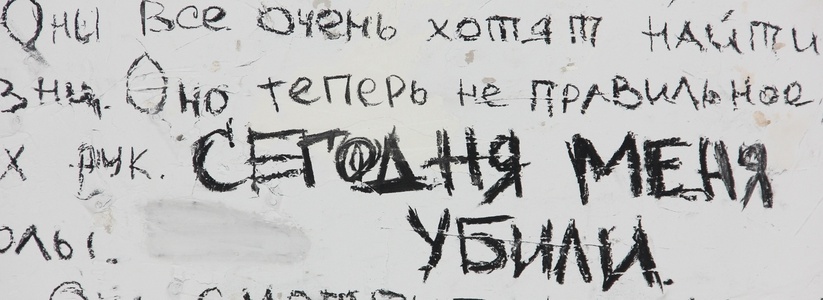 Они все очень хотят найти
зни. Оно теперь не правильное
х рук. СЕГОДНЯ МЕНЯ
олы. УБИЛИ.